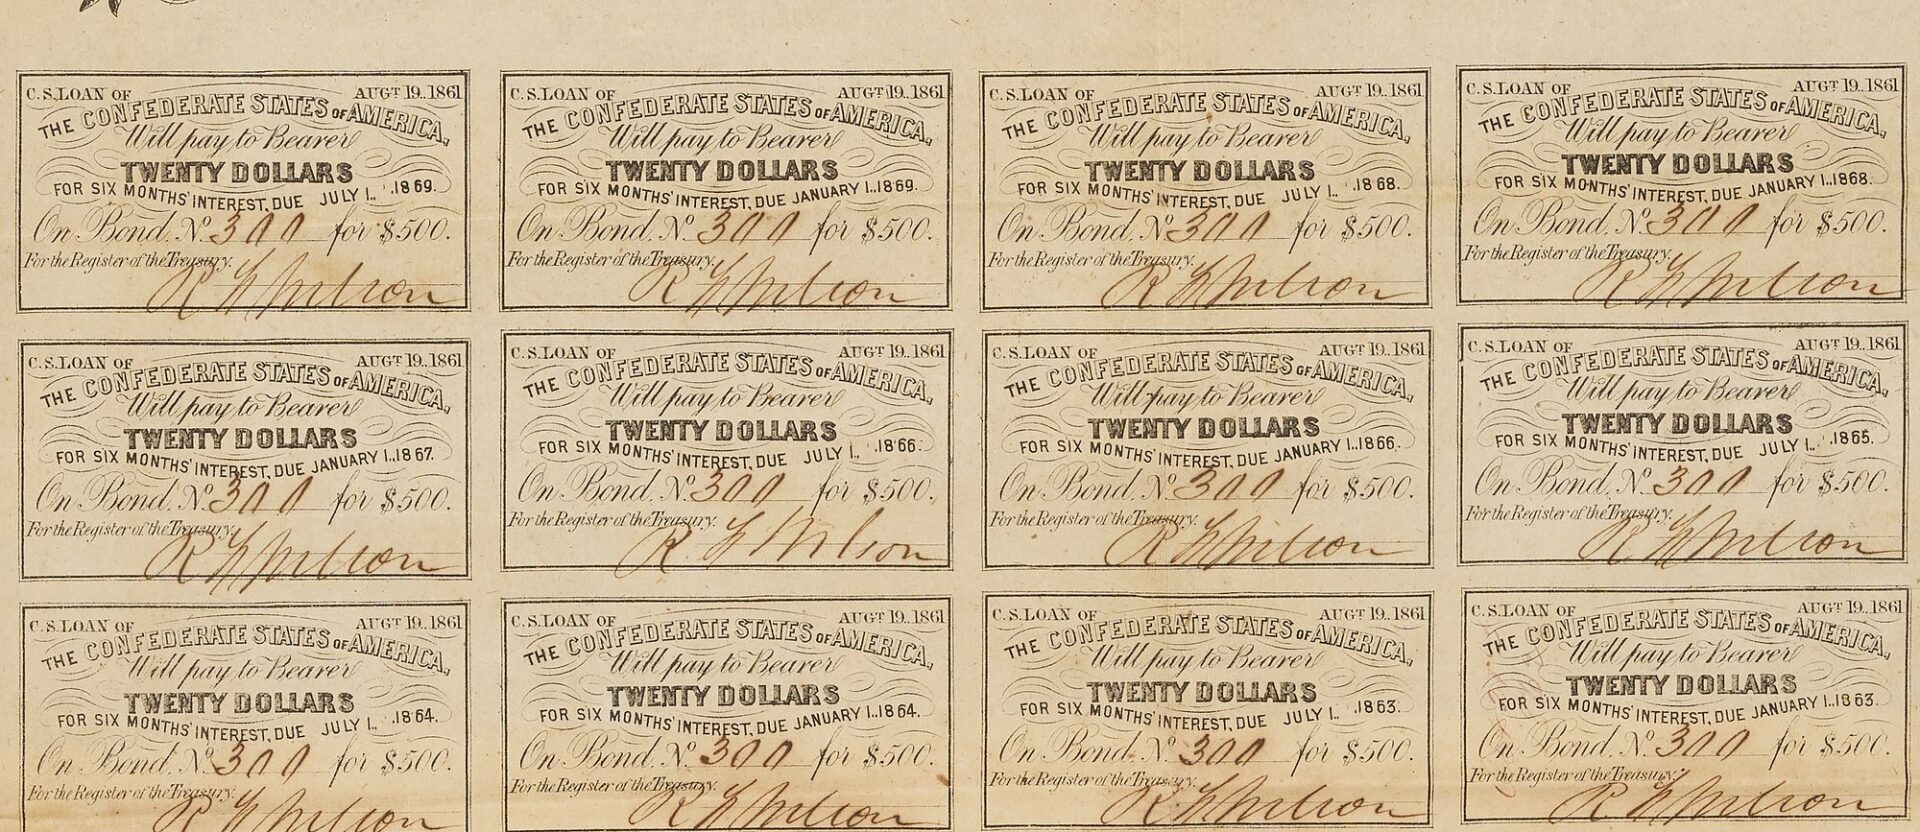 C.S. LOAN OF AUGT 19..1861
THE CONFEDERATE STATES OF AMERICA,
Will pay to Bearer
TWENTY DOLLARS
FOR SIX MONTHS' INTEREST, DUE JULY 1..1869.
On Bond. No. 300 for $500.
For the Register of the Treasury.
C.S. LOAN OF AUGT 19..1861
THE CONFEDERATE STATES OF AMERICA,
Will pay to Bearer
TWENTY DOLLARS
FOR SIX MONTHS' INTEREST, DUE JANUARY 1..1869.
On Bond. No. 300 for $500.
For the Register of the Treasury.
C.S. LOAN OF AUGT 19..1861
THE CONFEDERATE STATES OF AMERICA,
Will pay to Bearer
TWENTY DOLLARS
FOR SIX MONTHS' INTEREST, DUE JULY 1..1868.
On Bond. No. 300 for $500.
For the Register of the Treasury.
C.S. LOAN OF AUGT 19..1861
THE CONFEDERATE STATES OF AMERICA,
Will pay to Bearer
TWENTY DOLLARS
FOR SIX MONTHS' INTEREST, DUE JANUARY 1..1868.
On Bond. No. 300 for $500.
For the Register of the Treasury.
C.S. LOAN OF AUGT 19..1861
THE CONFEDERATE STATES OF AMERICA,
Will pay to Bearer
TWENTY DOLLARS
FOR SIX MONTHS' INTEREST, DUE JANUARY 1..1867.
On Bond. No. 300 for $500.
For the Register of the Treasury.
C.S. LOAN OF AUGT 19..1861
THE CONFEDERATE STATES OF AMERICA,
Will pay to Bearer
TWENTY DOLLARS
FOR SIX MONTHS' INTEREST, DUE JULY 1..1866.
On Bond. No. 300 for $500.
For the Register of the Treasury.
C.S. LOAN OF AUGT 19..1861
THE CONFEDERATE STATES OF AMERICA,
Will pay to Bearer
TWENTY DOLLARS
FOR SIX MONTHS' INTEREST, DUE JANUARY 1..1866.
On Bond. No. 300 for $500.
For the Register of the Treasury.
C.S. LOAN OF AUGT 19..1861
THE CONFEDERATE STATES OF AMERICA,
Will pay to Bearer
TWENTY DOLLARS
FOR SIX MONTHS' INTEREST, DUE JULY 1..1865.
On Bond. No. 300 for $500.
For the Register of the Treasury.
C.S. LOAN OF AUGT 19..1861
THE CONFEDERATE STATES OF AMERICA,
Will pay to Bearer
TWENTY DOLLARS
FOR SIX MONTHS' INTEREST, DUE JULY 1..1864.
On Bond. No. 300 for $500.
For the Register of the Treasury.
C.S. LOAN OF AUGT 19..1861
THE CONFEDERATE STATES OF AMERICA,
Will pay to Bearer
TWENTY DOLLARS
FOR SIX MONTHS' INTEREST, DUE JANUARY 1..1864.
On Bond. No. 300 for $500.
For the Register of the Treasury.
C.S. LOAN OF AUGT 19..1861
THE CONFEDERATE STATES OF AMERICA,
Will pay to Bearer
TWENTY DOLLARS
FOR SIX MONTHS' INTEREST, DUE JULY 1..1863.
On Bond. No. 300 for $500.
For the Register of the Treasury.
C.S. LOAN OF AUGT 19..1861
THE CONFEDERATE STATES OF AMERICA,
Will pay to Bearer
TWENTY DOLLARS
FOR SIX MONTHS' INTEREST, DUE JANUARY 1..1863.
On Bond. No. 300 for $500.
For the Register of the Treasury.